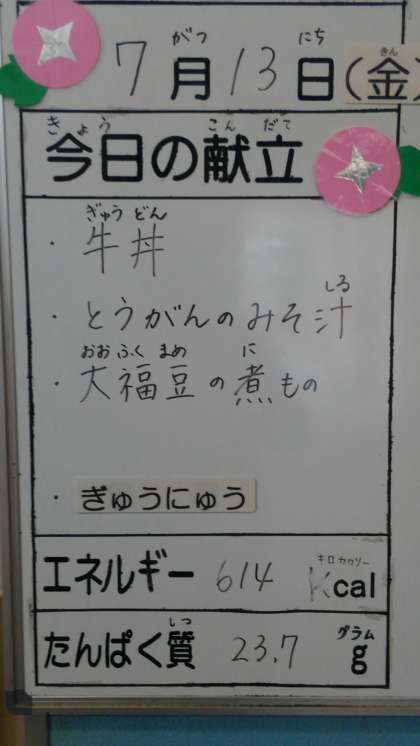 がつ にち きん
7月13日(金)
きょう こんだて
今日の献立
ぎゅうどん
・牛丼
しる
・とうがんのみそ汁
おおふくまめ に
・大福豆の煮もの
・ぎゅうにゅう
キロカロリー
エネルギー 614 Kcal
しつ グラム
たんぱく質 23.7 g